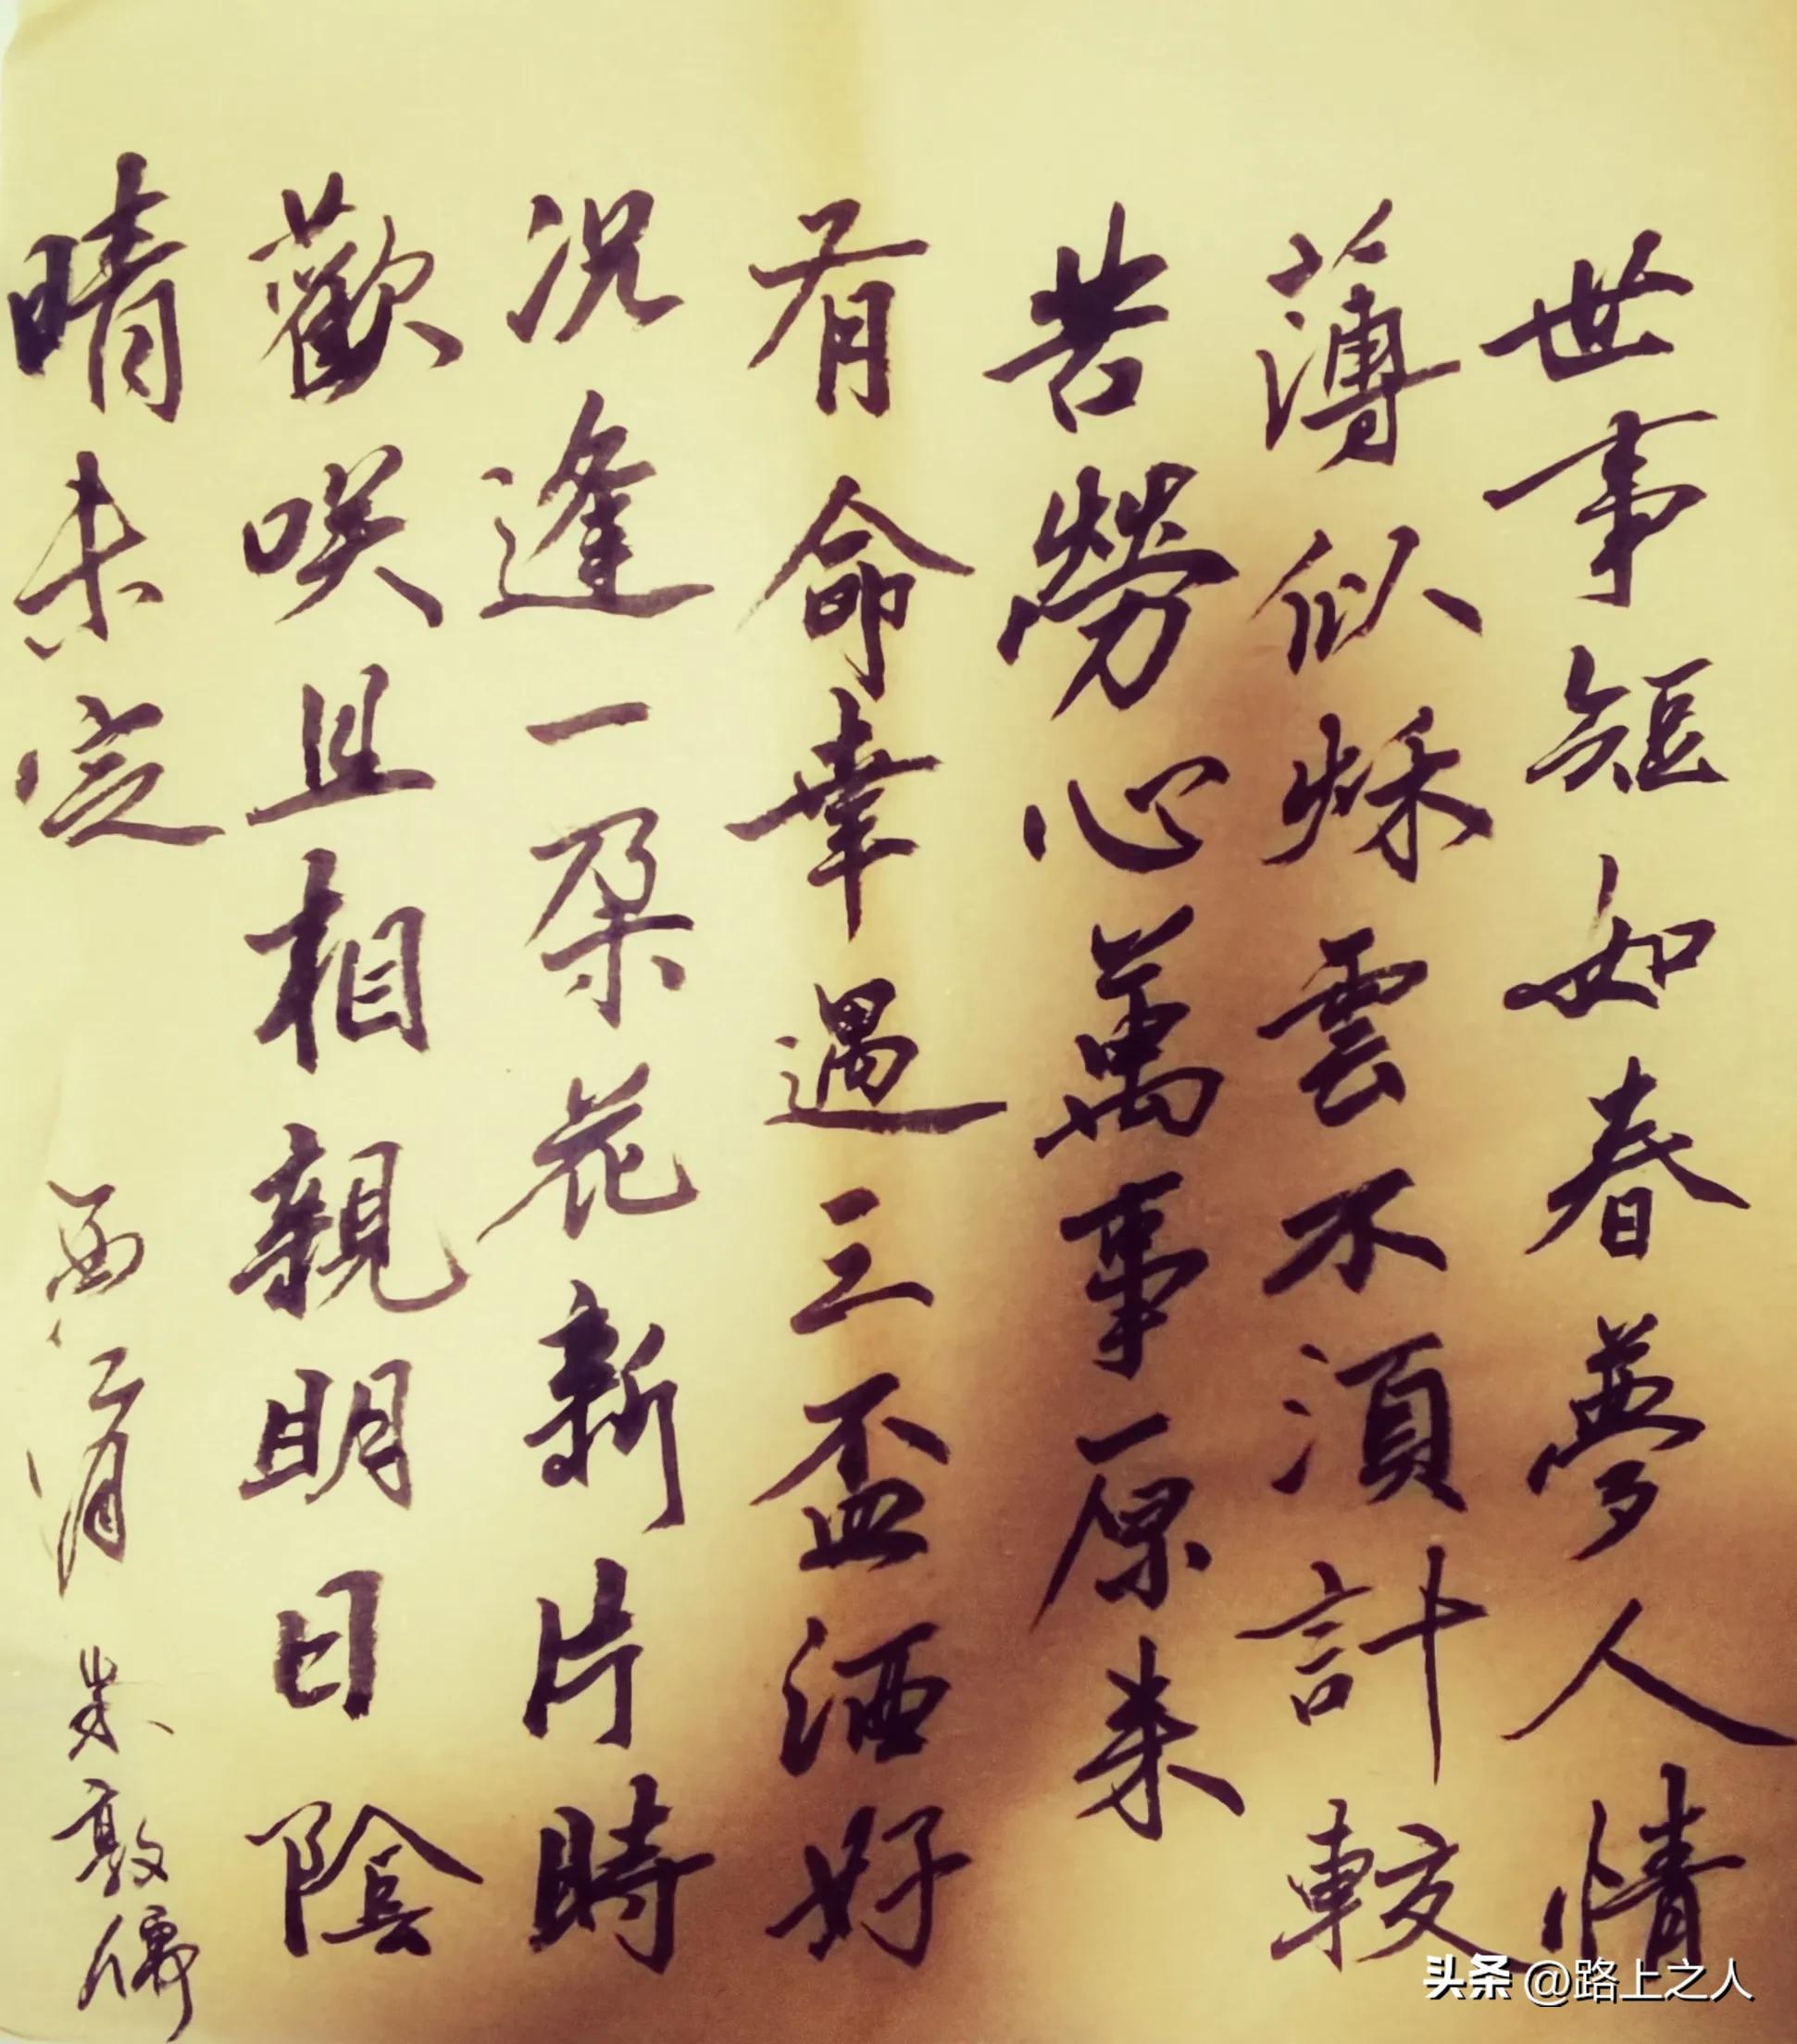 世事短如春夢人情
薄似秌雲不須計較
苦勞心萬事原来
有命幸遇三盃酒好
况逢一朵花新片時
歡咲且相親明日陰
晴未定 西江月 朱敦儒
头条 @路上之人